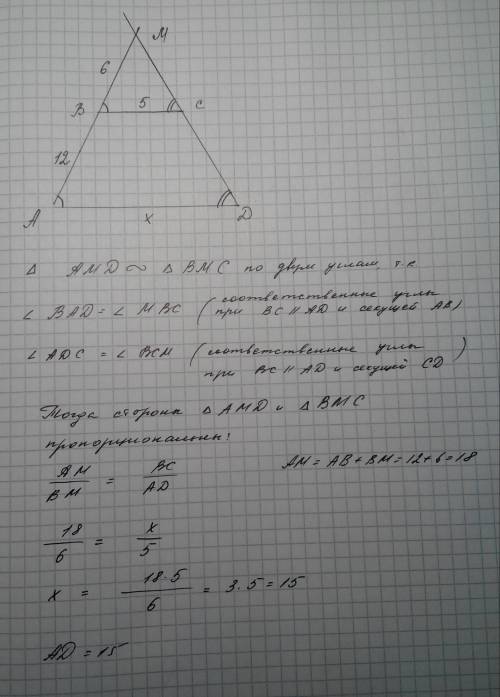 M
6
B 5 C
12
A x D
△ AMD ∾ △ BMC по двум углам, т.к
∠ BAD = ∠ MBC (соответственные углы
при BC ∥ AD и секущей AB)
∠ ADC = ∠ BCM (соответственные углы
при BC ∥ AD и секущей CD)
Тогда стороны △ AMD и △ BMC
пропорциональны:
AM/BM = BC/AD AM = AB + BM = 12 + 6 = 18
18/6 = x/5
x = 18·5/6 = 3·5 = 15
AD = 15